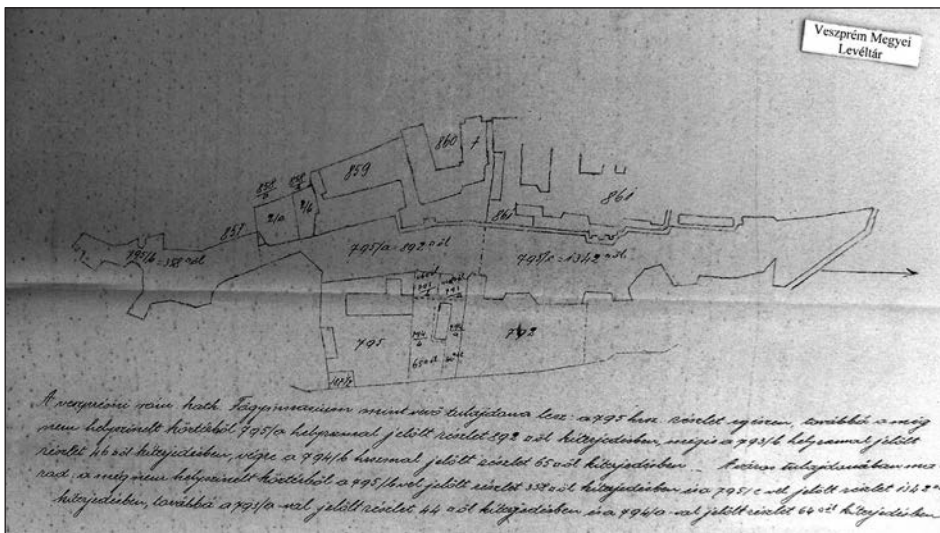 Veszprém Megyei
Levéltár
860
7
859
861
858/a
2/a
2/b
861
857
795/b = 358 □öl
795/a = 892 □öl
795/c = 1342 □öl
795
792
65 □öl
A veszprémi róm. kath. Főgymnasium mint vevő tulajdona lesz: a 795 hrsz. részlet egészen, továbbá a még
nem helyszínelt köztérből 795/a helyszámmal jelölt részlet 892 □öl kiterjedésben, mégis a 793/b helyszámmal jelölt
részlet 46 □öl kiterjedésben, végre a 794/b hszámmal jelölt részlet 65 □öl kiterjedésben. A város tulajdonában ma
rad: a még nem helyszínelt köztérből a 795/b-vel jelölt részlet 358 □öl kiterjedésben és a 795/c-vel jelölt részlet 1342 □
kiterjedésben, továbbá a 793/a-val jelölt részlet 44 □öl kiterjedésben és a 794/a-val jelölt részlet 64 □öl kiterjedésben